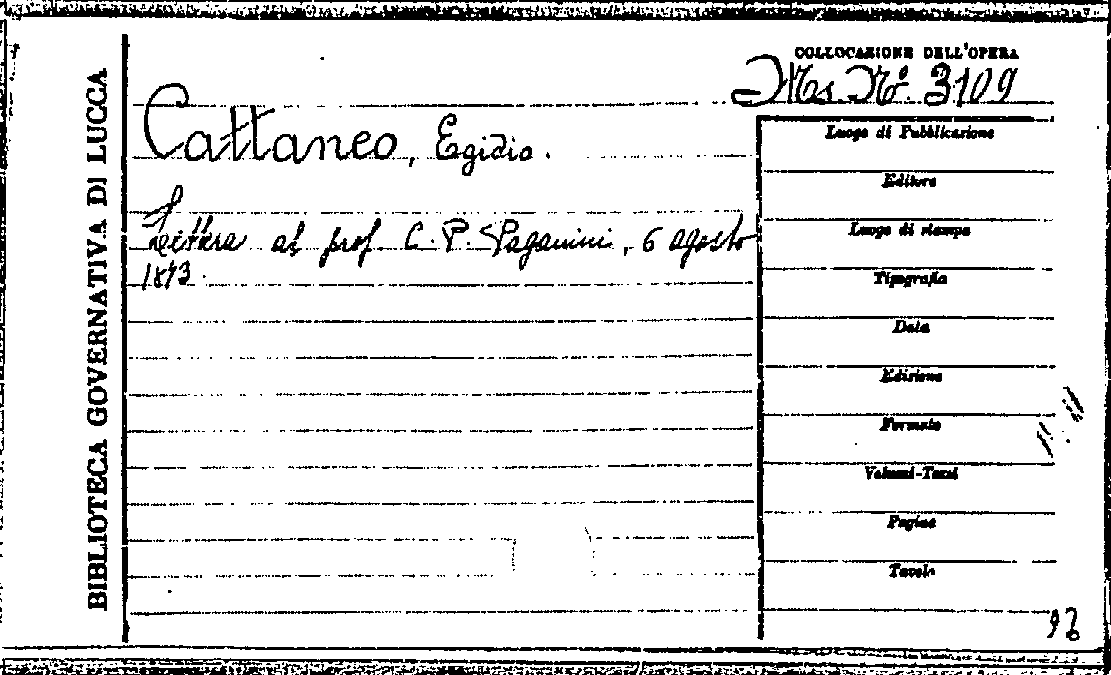 BIBLIOTECA GOVERNATIVA DI LUCCA
COLLOCAZIONE DELL'OPERA
Ms. N.º 3109
Cattaneo, Egidio.
Lettera al prof. C. P. Paganini, 6 agosto
1873.
Luogo di Pubblicazione
Editore
Luogo di stampa
Tipografia
Data
Edizione
Formato
Volumi-Tomi
Pagine
Tavole